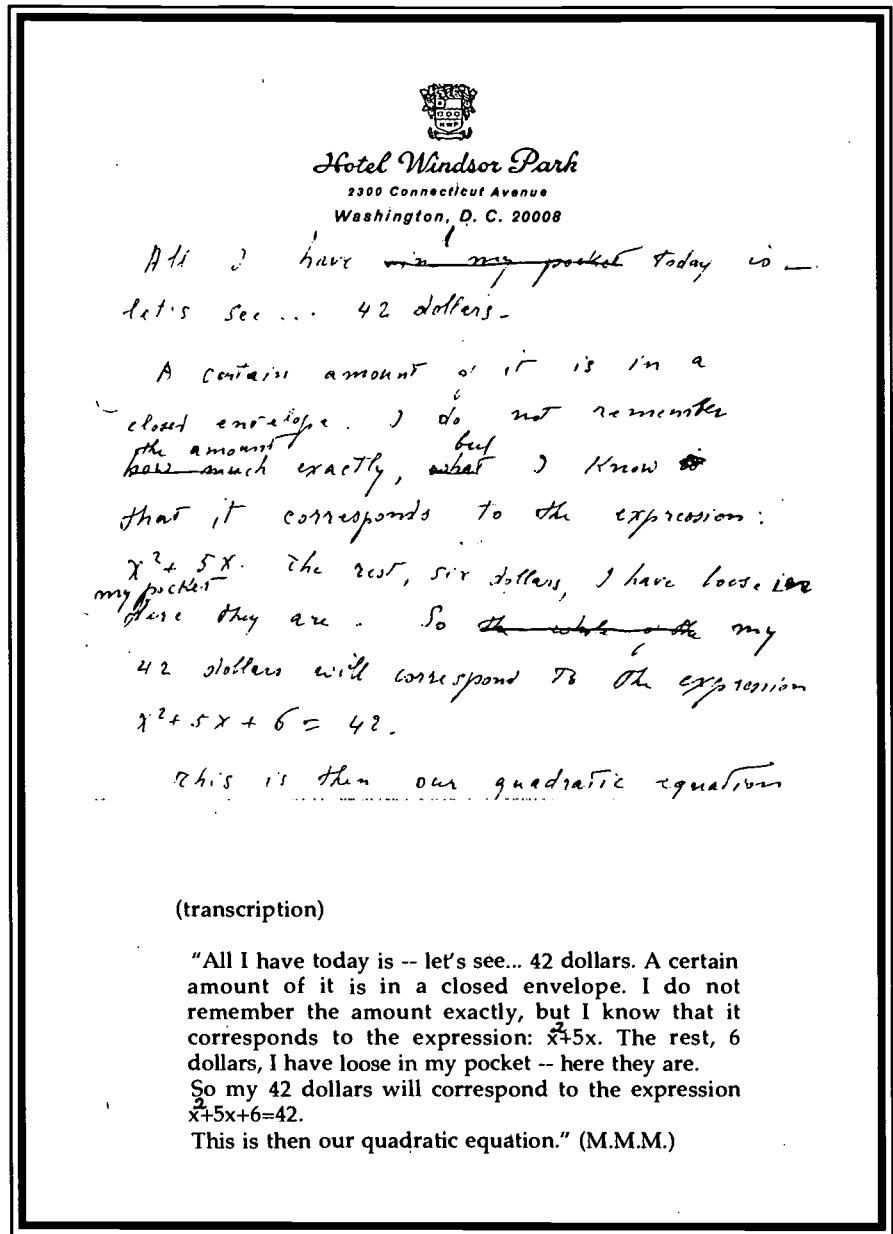 HWP
Hotel Windsor Park
2300 Connecticut Avenue
Washington, D. C. 20008
All I have in my pocket today is —
let's see ... 42 dollars -
A certain amount of it is in a
closed envelope. I do not remember
the amount but
how much exactly, what I know
that it corresponds to the expression:
x² + 5x. The rest, six dollars, I have loose in
my pocket
Here they are. So the whole my
42 dollars will correspond to the expression
x² + 5x + 6 = 42.
This is then our quadratic equation
(transcription)
"All I have today is -- let's see... 42 dollars. A certain
amount of it is in a closed envelope. I do not
remember the amount exactly, but I know that it
corresponds to the expression: x²+5x. The rest, 6
dollars, I have loose in my pocket -- here they are.
So my 42 dollars will correspond to the expression
x²+5x+6=42.
This is then our quadratic equation." (M.M.M.)